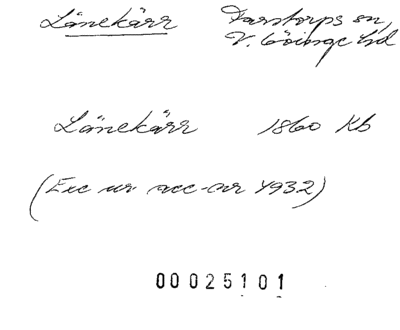 Länekärr Farstorps sn,
V. Göinge hd
Länekärr 1860 Kb
(Exc ur acc-nr 4932)
00025101